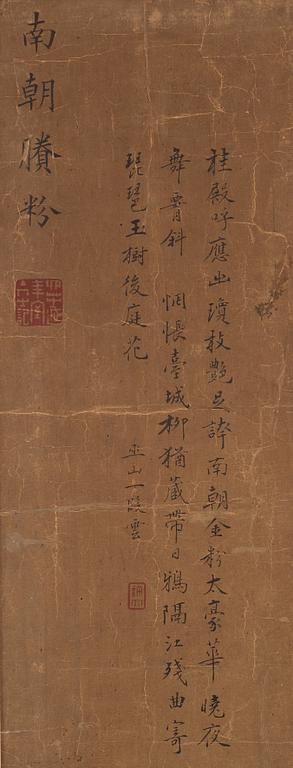 桂殿呼應出瓊枝艷足誇南朝金粉太豪華曉夜
舞斜 惆悵臺城柳猶藏帶日鴉隔江殘曲寄
琵琶玉樹後庭花
巫山一段雲
南朝賸粉